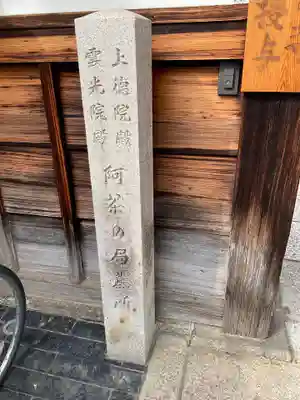 上徳院殿
雲光院殿
阿茶の局墓所